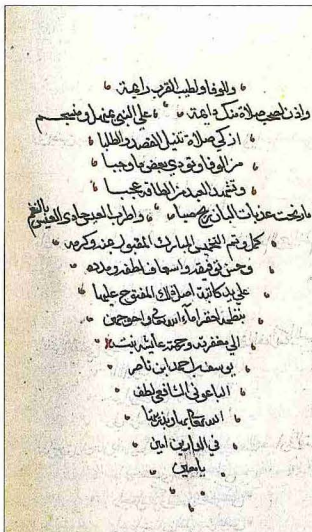 وللوفا ولطيب القرب رايمة
واذن لسحب صلاة منك دايمة على النبي بمنهل ومنسجم
ازكى صلاة تنيل القصد والطلبا
من الوفا وتودي بعض ما وجبا
وتشهد العبد من الطافه عجبا
ما رنحت عذبات البان ريح صبا واطرب العيس حادي العيس بالنغم
كمل وتم التخميس المبارك المقبول بمنه وكرمه
وحسن توفيقه واسعاف لطفه ومدده
على يد كاتبة المفتوح عليها
بنظمه احقر اماء الله تعالى واحوجهن
الى مغفرته ورحمته عايشة بنت
يوسف ابن احمد ابن ناصر
الباعوني الشافعي لطف
الله تعالى بها وبذريتها
في الدارين امين
يا معين